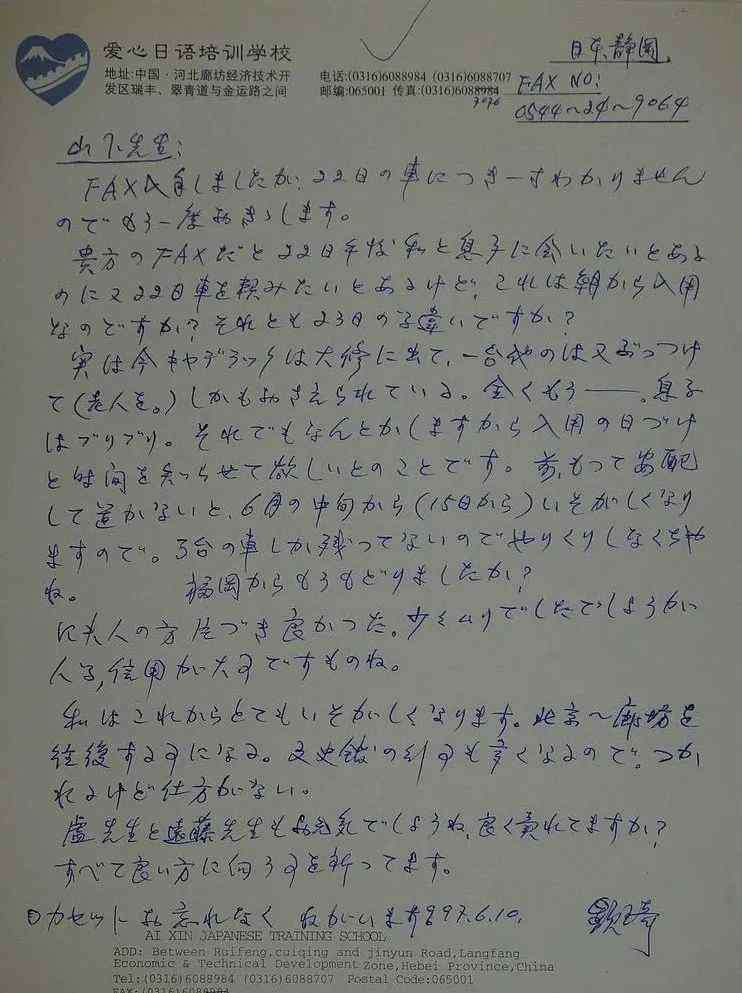 爱心日语培训学校
地址:中国·河北廊坊经济技术开
发区瑞丰、翠青道与金运路之间
电话:(0316)6088984 (0316)6088707
邮编:065001 传真:(0316)6088984
7076
日本静岡
FAX NO:
0544~24~9064
山下先生:
FAX入手しましたが、22日の車につき一すわかりません
のでもう一度おききします。
貴方のFAXだと22日午後私と息子に会いたいとある
のに又22日車を頼みたいとあるけど、これは朝から入用
なのですか?それとも23日の字違いですか?
実は今キャデラックは大修に出て、一台他のは又ぶっつけ
て(老人を。)しかもおさえられている。全くもう——。息子
はブリブリ。それでもなんとかしますから入用の日づけ
と時间を知らせて欲しいとのことです。前もって安配
して置かないと、6月の中旬から(15日から)いそがしくなり
ますので。3台の車しか残ってないのでやりくりしなくちゃ
ね。 福岡からもうもどりましたか?
夫人の方片づき良かった。少々ムリでしたでしょうが
人子,信用が大事ですものね。
私はこれからとてもいそがしくなります。北京~廊坊を
往復する事になる。文史館の行事も多くなるので。つか
れるけど仕方がない。
盧先生と遠藤先生もお元気でしょうね,良く売れてますか?
すべて良い方に向う事を祈ってます。
カセットお忘れなく ねがいます 97.6.10.
AI XIN JAPANESE TRAINING SCHOOL
ADD: Between Ruifeng,cuiqing and jinyun Road,Langfang
Economic & Technical Development Zone,Hebei Province,China
Tel:(0316)6088984 (0316)6088707 Postal Code:065001
FAX:(0316)6088984